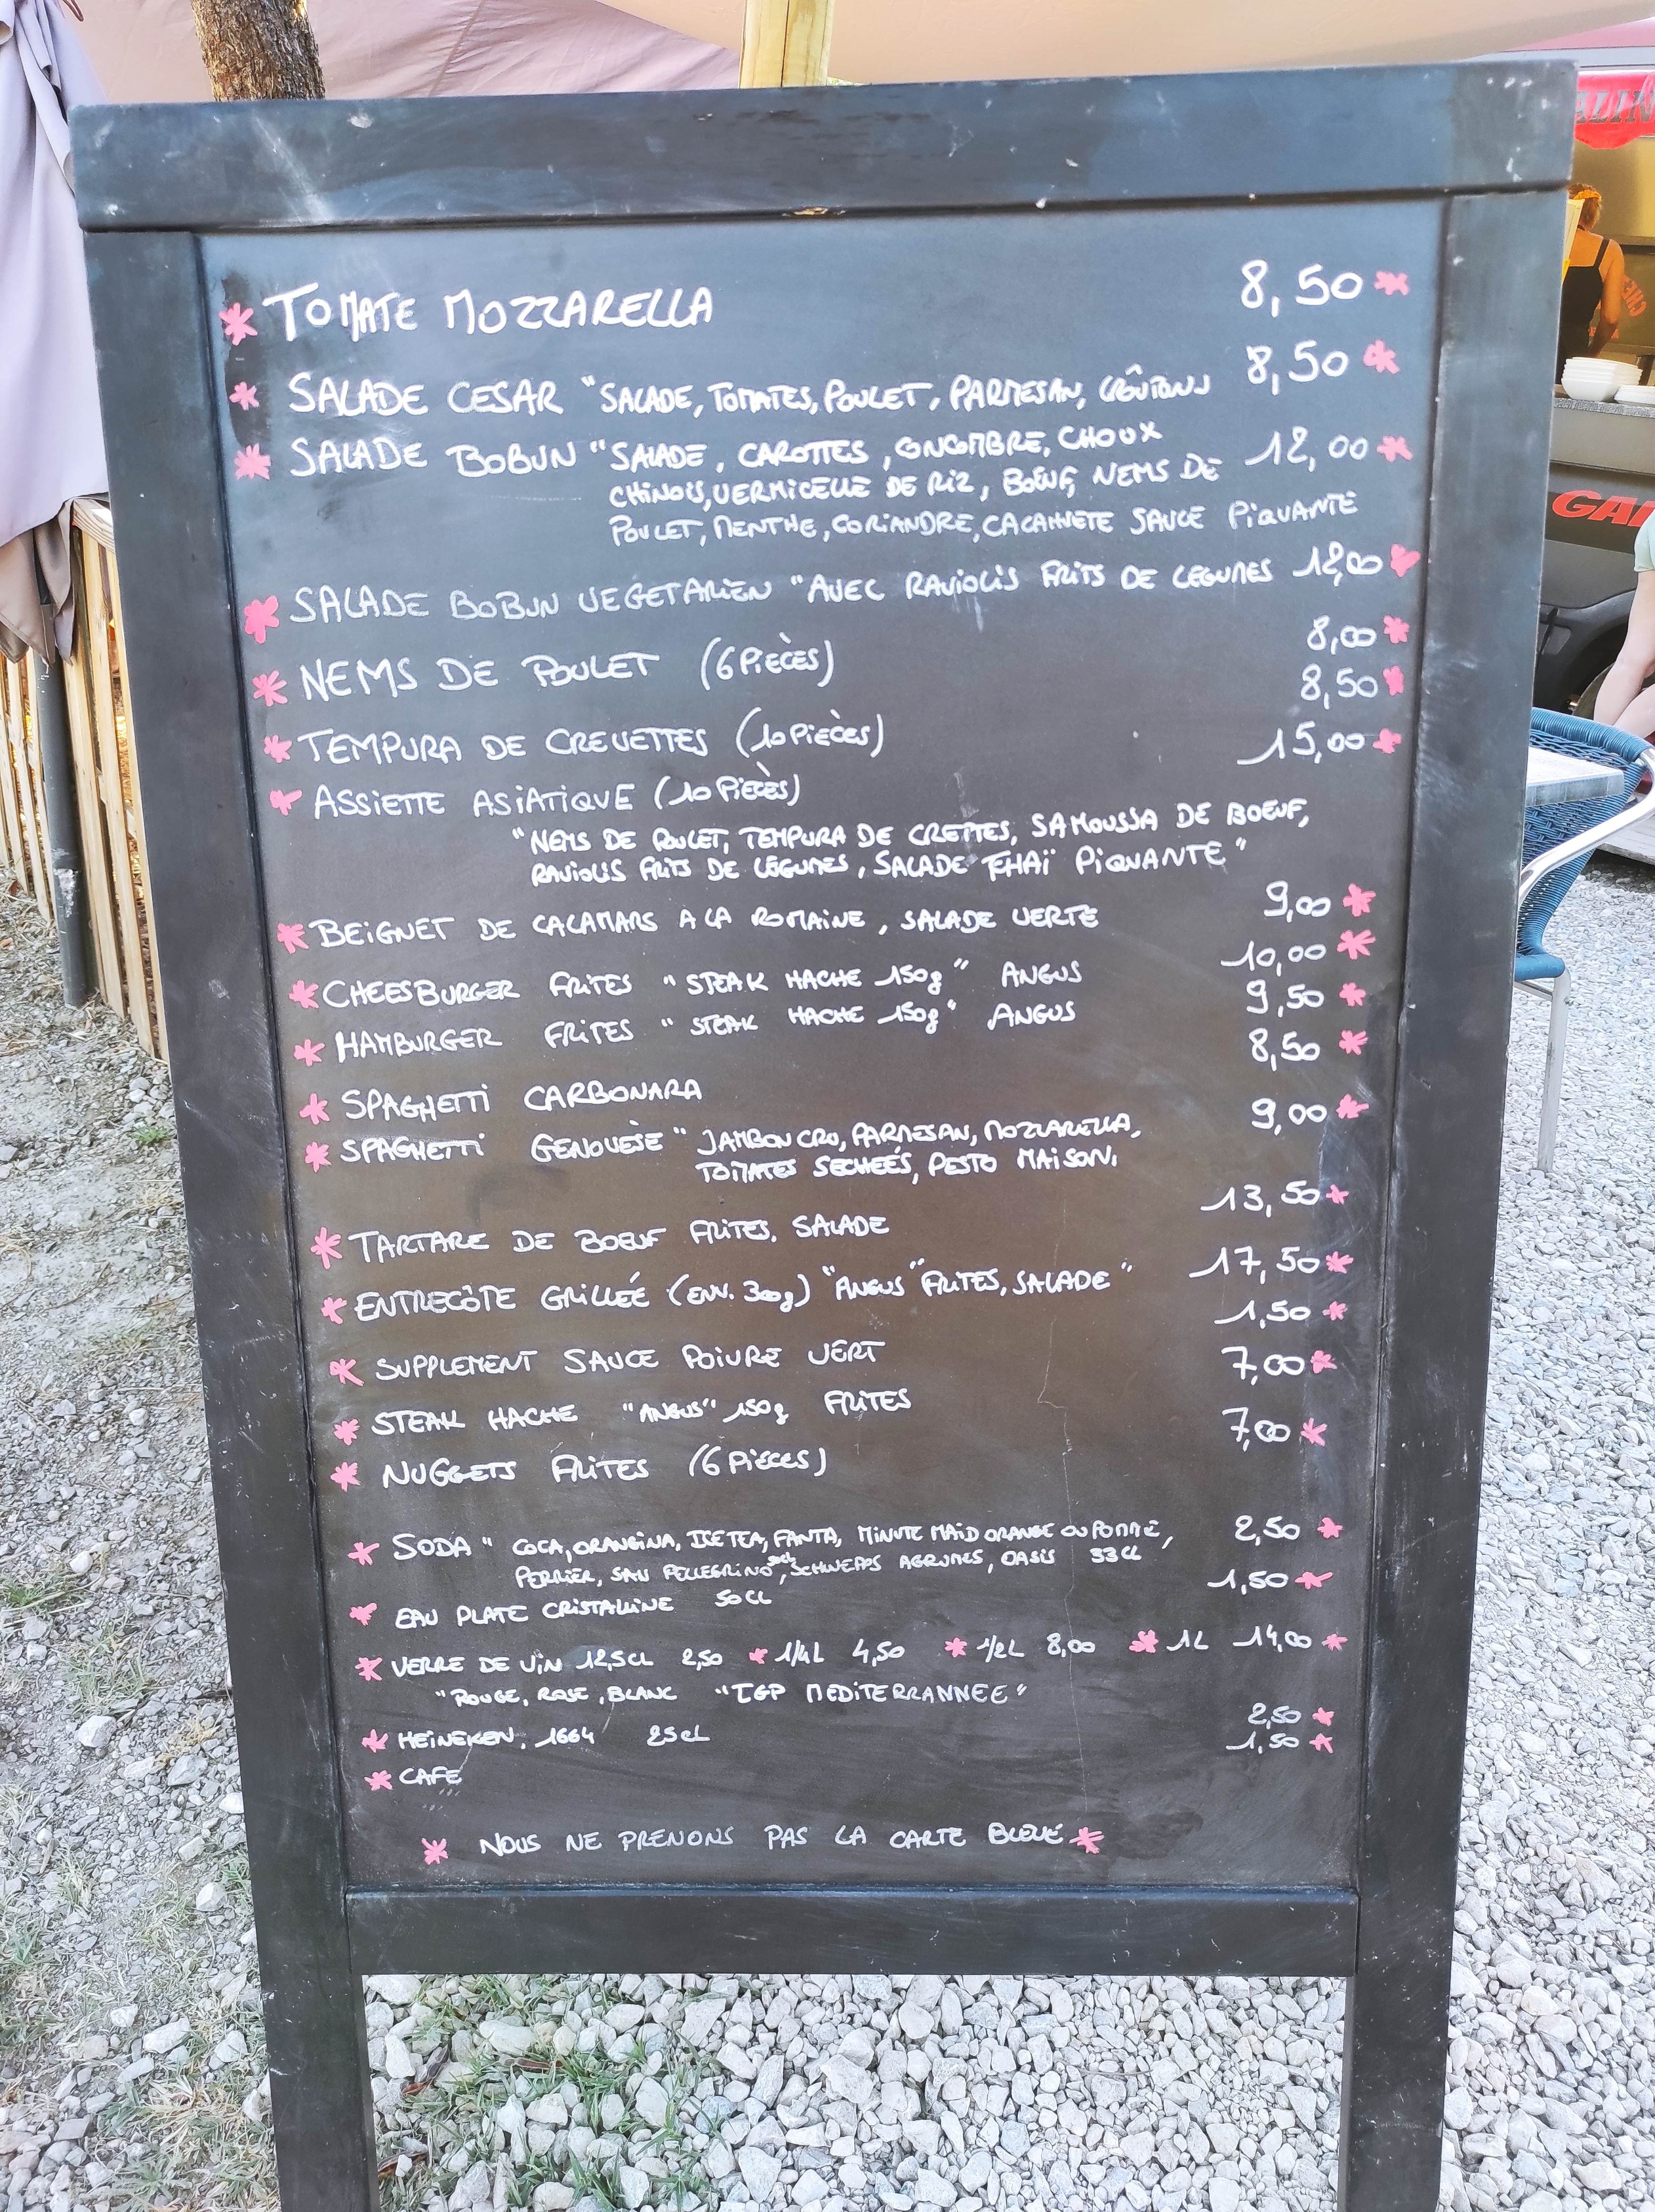 TOMATE MOZZARELLA 8,50
SALADE CESAR "SALADE, TOMATES, POULET, PARMESAN, CROÛTONS 8,50
SALADE BOBUN "SALADE, CAROTTES, CONCOMBRE, CHOUX 12,00
CHINOIS, VERMICELLE DE RIZ, BŒUF, NEMS DE
POULET, MENTHE, CORIANDRE, CACAHNETE SAUCE PIQUANTE
SALADE BOBUN VEGETARIEN "AVEC RAVIOLIS FRITS DE LEGUMES 12,00
NEMS DE POULET (6 PIECÈS) 8,00
TEMPURA DE CREVETTES (10 PIÈCÈS) 8,50
ASSIETTE ASIATIQUE (10 PIECÈS) 15,00
"NEMS DE POULET, TEMPURA DE CRETTES, SAMOUSSA DE BOEUF,
RAVIOLIS FRITS DE LÉGUMES, SALADE THAÏ PIQUANTE"
BEIGNET DE CALAMARS A LA ROMAINE, SALADE VERTE 9,00
CHEESBURGER FRITES "STEAK HACHE 150g" ANGUS 10,00
HAMBURGER FRITES "STEAK HACHE 150g" ANGUS 9,50
SPAGHETTI CARBONARA 8,50
SPAGHETTI GENOVESE "JAMBON CRU, PARMESAN, MOZZARELLA, 9,00
TOMATES SECHEÉS, PESTO MAISON.
TARTARE DE BOEUF FRITES. SALADE 13,50
ENTRECÔTE GRILLEÉ (ENV. 300g) "ANGUS" FRITES, SALADE" 17,50
SUPPLEMENT SAUCE POIVRE VERT 1,50
STEAK HACHE "ANGUS" 150g FRITES 7,00
NUGGETS FRITES (6 PIÈCES) 7,00
SODA " COCA, ORANGINA, ICE TEA, FANTA, MINUTE MAID ORANGE OU POMME, 2,50
PERRIER, SAN PELLEGRINO 50CL, SCHWEPPS AGRUMES, OASIS 33CL
EAU PLATE CRISTALLINE 50CL 1,50
VERRE DE VIN 12,5CL 2,50 1/4L 4,50 1/2L 8,00 1L 14,00
"ROUGE, ROSE, BLANC "IGP MEDITERRANNEE"
HEINEKEN, 1664 25CL 2,50
CAFE 1,50
NOUS NE PRENONS PAS LA CARTE BLEUE